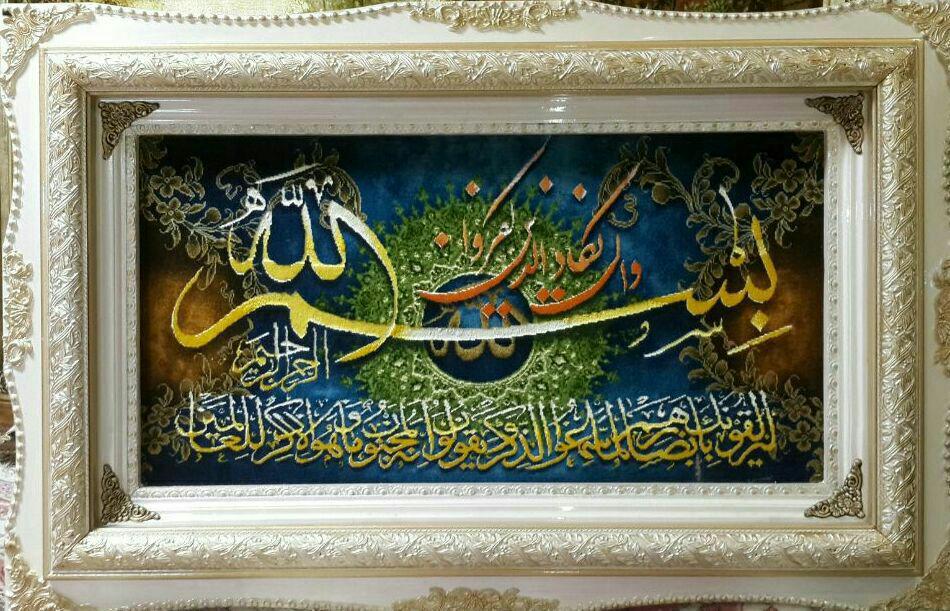 بسم الله
الرحمن الرحیم
وان یکاد الذین کفروا
لیزلقونک بابصارهم لما سمعوا الذکر ویقولون انه لمجنون وما هو الا ذکر للعالمین
الله